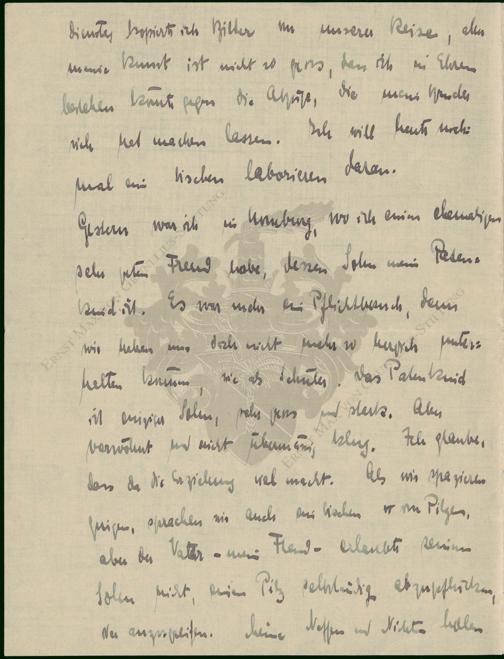 Dienstag kopierte ich Bilder von unserer Reise, aber
meine Kunst ist nicht so gross, dass ich in Ehren
bestehen könnte gegen die Abzüge, die mein Bruder
sich hat machen lassen. Ich will heute noch
mal ein bischen laborieren daran.
Gestern war ich in Homburg, wo ich einen ehemaligen
sehr guten Freund habe, dessen Sohn mein Paten-
kind ist. Es war mehr ein Pflichtbesuch, denn
wir haben uns doch nicht mehr so herzlich unter-
halten können, wie als Schüler. Das Patenkind
ist einziger Sohn, sehr gross und stark. Aber
verwöhnt und nicht übermässig klug. Ich glaube,
dass da die Erziehung viel macht. Als wir spazieren
gingen, sprachen wir auch ein bischen von Pilzen,
aber der Vater - mein Freund - erlaubte seinem
Sohn nicht, einen Pilz selbständig abzupflücken,
oder anzugreifen. Meine Neffen und Nichten haben
ERNST MAX
STIFTUNG